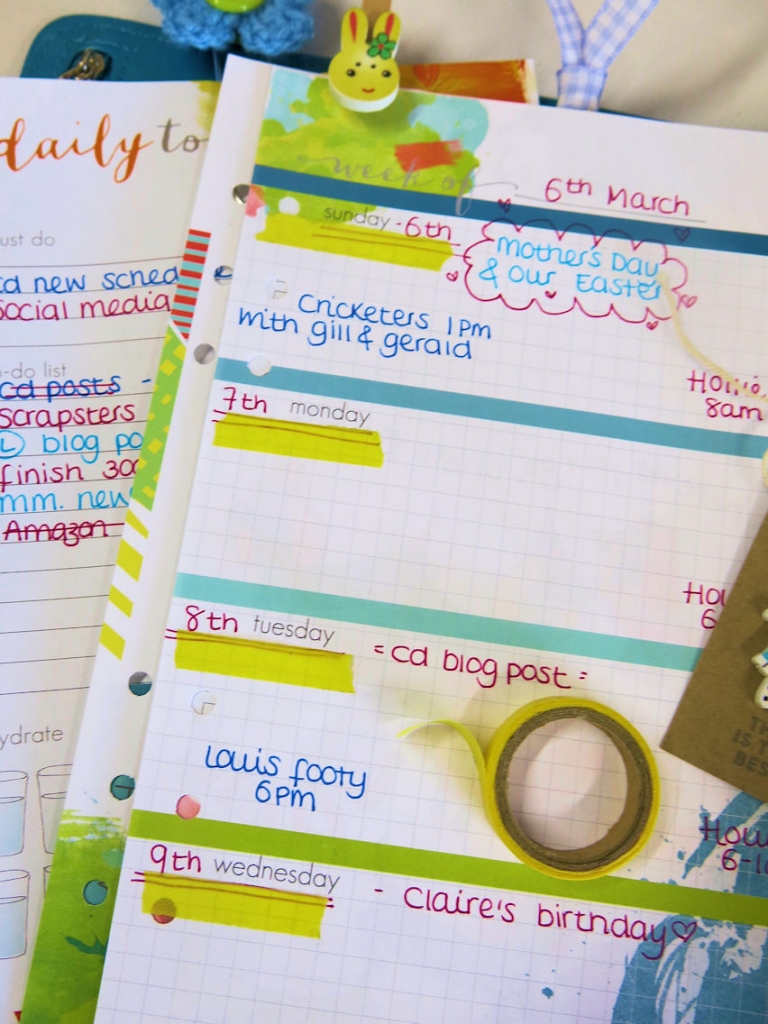 daily to
ust do
cd new sched
social media
-do list
cd posts -
scrapsters
L blog po
finish 300
mm. new
Amazon
ydrate
week of 6th March
sunday - 6th
Mother's Day
& our Easter
Cricketers 1pm
with gill & gerald
8am
7th monday
6
8th tuesday
= cd blog post =
Louis footy
6pm
6-1
9th wednesday - Claire's birthday♡
TH
IS T
BES